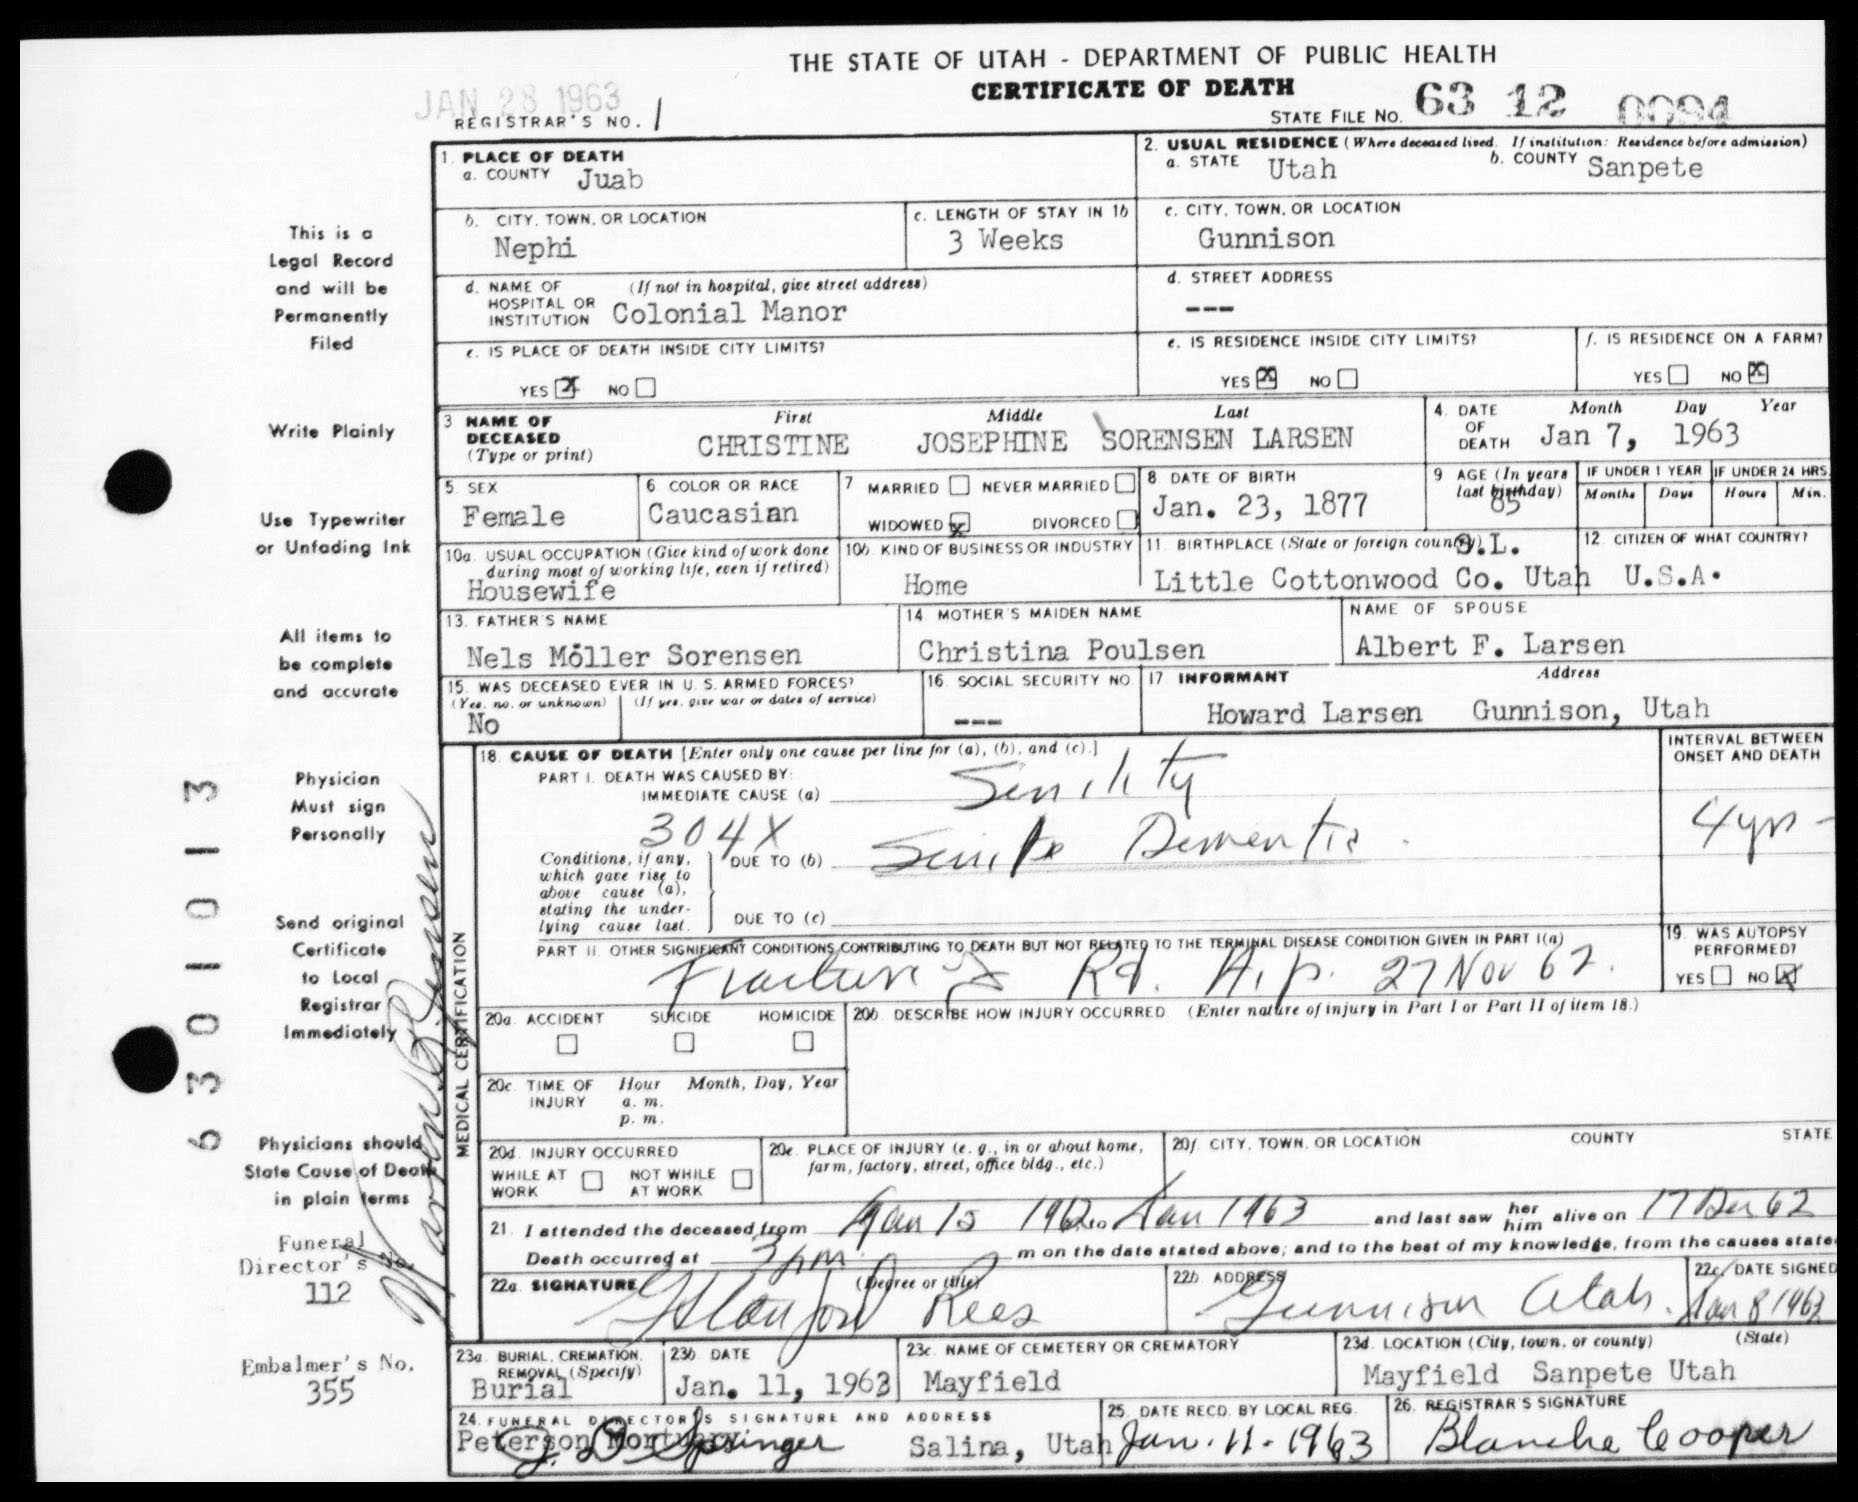 THE STATE OF UTAH - DEPARTMENT OF PUBLIC HEALTH
CERTIFICATE OF DEATH
JAN 28 1963
REGISTRAR'S NO. 1
STATE FILE NO. 63 12 0094
1. PLACE OF DEATH
a. COUNTY Juab
2. USUAL RESIDENCE (Where deceased lived. If institution: Residence before admission)
a. STATE Utah b. COUNTY Sanpete
b. CITY, TOWN, OR LOCATION
Nephi
c. LENGTH OF STAY IN 1b
3 Weeks
c. CITY, TOWN, OR LOCATION
Gunnison
d. NAME OF HOSPITAL OR INSTITUTION (If not in hospital, give street address)
Colonial Manor
d. STREET ADDRESS
---
e. IS PLACE OF DEATH INSIDE CITY LIMITS?
YES X NO
e. IS RESIDENCE INSIDE CITY LIMITS?
YES X NO
f. IS RESIDENCE ON A FARM?
YES NO X
3 NAME OF DECEASED (Type or print)
First Middle Last
CHRISTINE JOSEPHINE SORENSEN LARSEN
4. DATE OF DEATH Month Day Year
Jan 7, 1963
5. SEX
Female
6 COLOR OR RACE
Caucasian
7 MARRIED NEVER MARRIED
WIDOWED X DIVORCED
8 DATE OF BIRTH
Jan. 23, 1877
9 AGE (In years last birthday)
85
IF UNDER 1 YEAR
Months Days
IF UNDER 24 HRS.
Hours Min.
10a. USUAL OCCUPATION (Give kind of work done during most of working life, even if retired)
Housewife
10b. KIND OF BUSINESS OR INDUSTRY
Home
11. BIRTHPLACE (State or foreign country) S.L.
Little Cottonwood Co. Utah
12. CITIZEN OF WHAT COUNTRY?
U.S.A.
13. FATHER'S NAME
Nels Möller Sorensen
14. MOTHER'S MAIDEN NAME
Christina Poulsen
NAME OF SPOUSE
Albert F. Larsen
15. WAS DECEASED EVER IN U. S. ARMED FORCES?
(Yes, no, or unknown) (If yes, give war or dates of service)
No
16. SOCIAL SECURITY NO.
---
17 INFORMANT Address
Howard Larsen Gunnison, Utah
MEDICAL CERTIFICATION
18. CAUSE OF DEATH [Enter only one cause per line for (a), (b), and (c).]
PART I. DEATH WAS CAUSED BY:
IMMEDIATE CAUSE (a) Senility
304X
Conditions, if any, which gave rise to above cause (a), stating the underlying cause last.
DUE TO (b) Senile Dementia
DUE TO (c)
INTERVAL BETWEEN ONSET AND DEATH
4 yrs -
PART II. OTHER SIGNIFICANT CONDITIONS CONTRIBUTING TO DEATH BUT NOT RELATED TO THE TERMINAL DISEASE CONDITION GIVEN IN PART I(a)
Fracture Rt. Hip. 27 Nov 62.
19. WAS AUTOPSY PERFORMED?
YES NO X
20a. ACCIDENT SUICIDE HOMICIDE
20b. DESCRIBE HOW INJURY OCCURRED. (Enter nature of injury in Part I or Part II of item 18.)
20c. TIME OF INJURY Hour Month, Day, Year
a. m.
p. m.
20d. INJURY OCCURRED
WHILE AT WORK NOT WHILE AT WORK
20e. PLACE OF INJURY (e. g., in or about home, farm, factory, street, office bldg., etc.)
20f. CITY, TOWN, OR LOCATION COUNTY STATE
21. I attended the deceased from Jan 15 1962 to Jan 1963 and last saw her him alive on 17 Dec 62
Death occurred at 3 pm. m on the date stated above; and to the best of my knowledge, from the causes state
22a. SIGNATURE (Degree or title)
Stanford Rees
22b. ADDRESS
Gunnison Utah.
22c. DATE SIGNED
Jan 8 1963
23a. BURIAL, CREMATION, REMOVAL (Specify)
Burial
23b. DATE
Jan. 11, 1963
23c. NAME OF CEMETERY OR CREMATORY
Mayfield
23d. LOCATION (City, town, or county) (State)
Mayfield Sanpete Utah
24. FUNERAL DIRECTOR'S SIGNATURE AND ADDRESS
Peterson Mortuary Salina, Utah
J. D. Springer
25. DATE RECD. BY LOCAL REG.
Jan. 11 - 1963
26. REGISTRAR'S SIGNATURE
Blanche Cooper
This is a
Legal Record
and will be
Permanently
Filed
Write Plainly
Use Typewriter
or Unfading Ink
All items to
be complete
and accurate
Physician
Must sign
Personally
Send original
Certificate
to Local
Registrar
Immediately
Physicians should
State Cause of Death
in plain terms
Funeral
Director's No.
112
Embalmer's No.
355
6301013